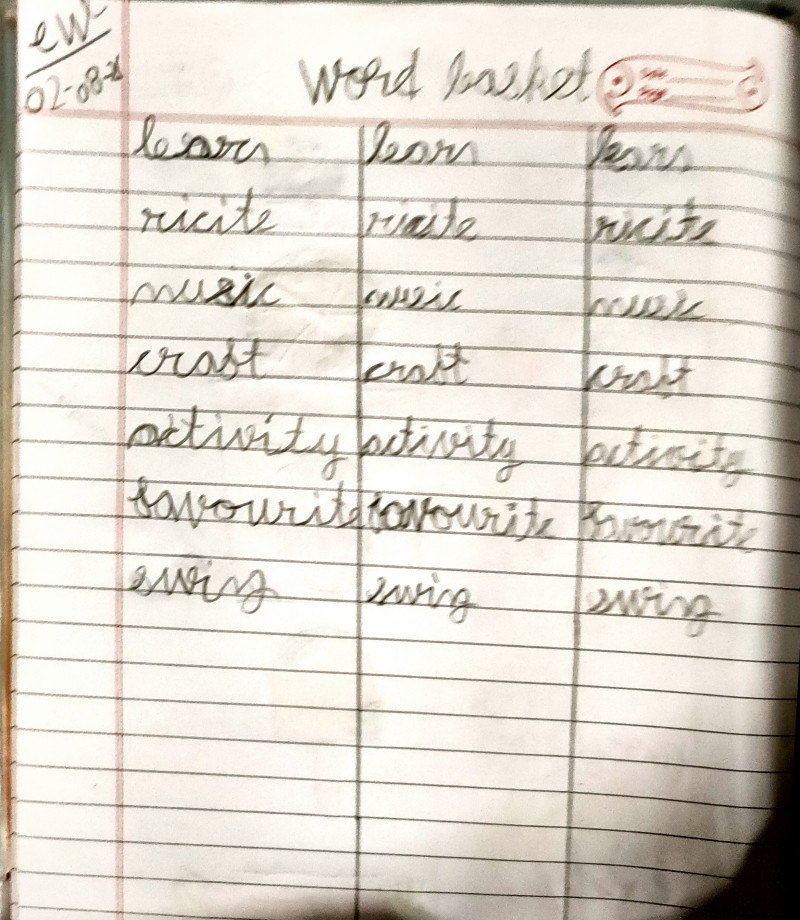 CW-
02-08-
Word basket
learn learn learn
ricite ricite ricite
music music music
craft craft craft
activity activity activity
favourite favourite favourite
swing swing swing